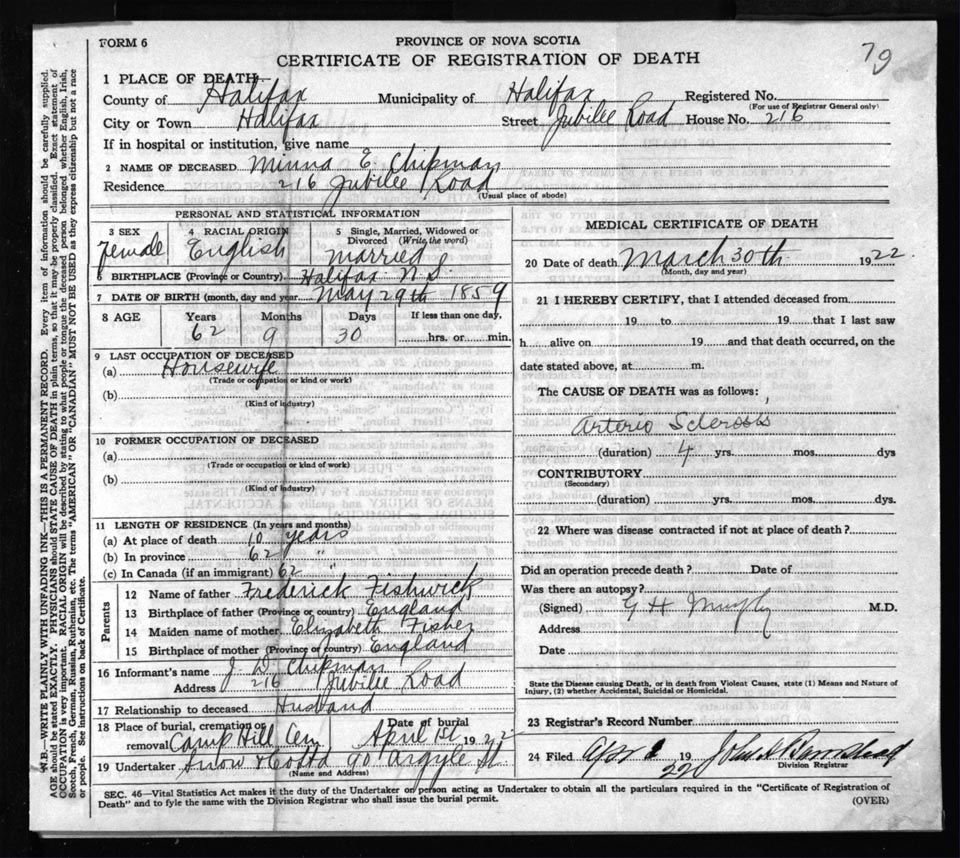 FORM 6
PROVINCE OF NOVA SCOTIA
79
CERTIFICATE OF REGISTRATION OF DEATH
1 PLACE OF DEATH
County of Halifax Municipality of Halifax Registered No.
(For use of Registrar General only)
City or Town Halifax Street Jubilee Road House No. 216
If in hospital or institution, give name
2 NAME OF DECEASED Minna E. Chipman
Residence 216 Jubilee Road
(Usual place of abode)
PERSONAL AND STATISTICAL INFORMATION
3 SEX 4 RACIAL ORIGIN 5 Single, Married, Widowed or
Divorced (Write the word)
Female English Married
6 BIRTHPLACE (Province or Country) Halifax N.S.
7 DATE OF BIRTH (month, day and year) May 29th 1859
8 AGE Years Months Days If less than one day,
62 9 30 hrs. or min.
9 LAST OCCUPATION OF DECEASED
(a) Housewife
(Trade or occupation or kind or work)
(b)
(Kind of industry)
10 FORMER OCCUPATION OF DECEASED
(a)
(Trade or occupation or kind of work)
(b)
(Kind of industry)
11 LENGTH OF RESIDENCE (In years and months)
(a) At place of death 10 years
(b) In province 62 "
(c) In Canada (if an immigrant) 62 "
Parents
12 Name of father Frederick Fishwick
13 Birthplace of father (Province or country) England
14 Maiden name of mother Elizabeth Fisher
15 Birthplace of mother (Province or country) England
16 Informant's name J. D. Chipman
Address 216 Jubilee Road
17 Relationship to deceased Husband
18 Place of burial, cremation or Date of burial
removal Camp Hill Cem April 1st 1922
19 Undertaker Snow & Co Ltd 90 Argyle St.
(Name and Address)
MEDICAL CERTIFICATE OF DEATH
20 Date of death March 30th 1922.
(Month, day and year)
21 I HEREBY CERTIFY, that I attended deceased from
19 to 19 that I last saw
h alive on 19 and that death occurred, on the
date stated above, at m.
The CAUSE OF DEATH was as follows:
Arterio Sclerosis
(duration) 4 yrs. mos. dys
CONTRIBUTORY
(Secondary)
(duration) yrs. mos. dys.
22 Where was disease contracted if not at place of death?
Did an operation precede death? Date of
Was there an autopsy?
(Signed) G H Murphy M.D.
Address
Date
State the Disease causing Death, or in death from Violent Causes, state (1) Means and Nature of
Injury, (2) whether Accidental, Suicidal or Homicidal.
23 Registrar's Record Number
24 Filed Apr 1 1922
Division Registrar
SEC. 46—Vital Statistics Act makes it the duty of the Undertaker or person acting as Undertaker to obtain all the particulars required in the "Certificate of Registration of
Death" and to fyle the same with the Division Registrar who shall issue the burial permit.
(OVER)
N.B.—WRITE PLAINLY WITH UNFADING INK—THIS IS A PERMANENT RECORD. Every item of information should be carefully supplied.
AGE should be stated EXACTLY. PHYSICIANS should STATE CAUSE OF DEATH in plain terms, so that it may be properly classified. Exact statement of
OCCUPATION is very important. RACIAL ORIGIN will be described by stating to what people or tongue the deceased person belonged whether English, Irish,
Scotch, French, German, Russian, Ruthenian, etc. The terms "AMERICAN" OR "CANADIAN" MUST NOT BE USED as they express citizenship but not a race
or people. See instructions on back of Certificate.